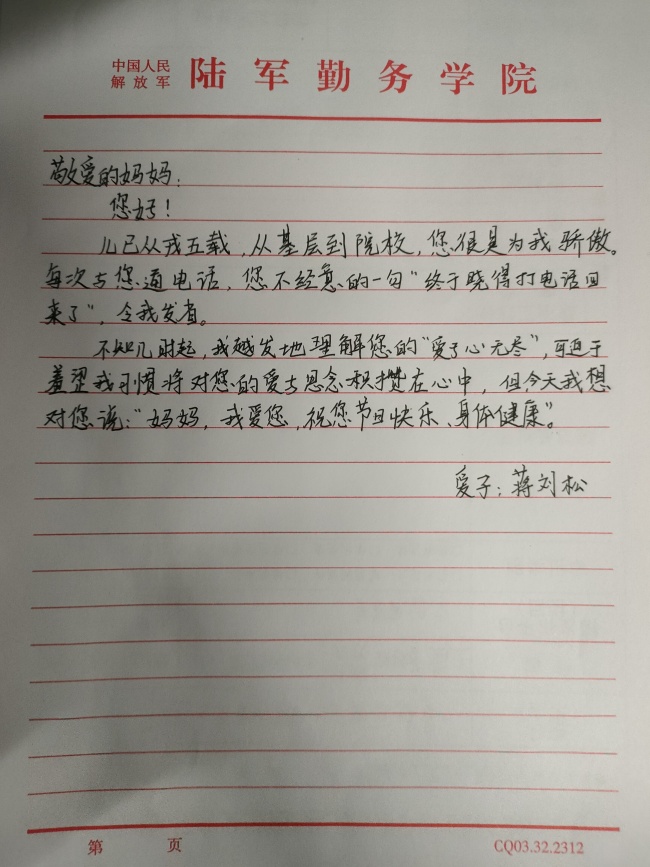 中国人民
解放军 陆军勤务学院
敬爱的妈妈：
您好！
儿已从戎五载，从基层到院校，您很是为我骄傲。
每次与您通电话，您不经意的一句“终于晓得打电话回
来了”，令我发省。
不知几时起，我越发地理解您的“爱子心无尽”，可迫于
羞涩我习惯将对您的爱与思念积攒在心中，但今天我想
对您说：“妈妈，我爱您，祝您节日快乐、身体健康”。
爱子：蒋刘松
第 页 CQ03.32.2312